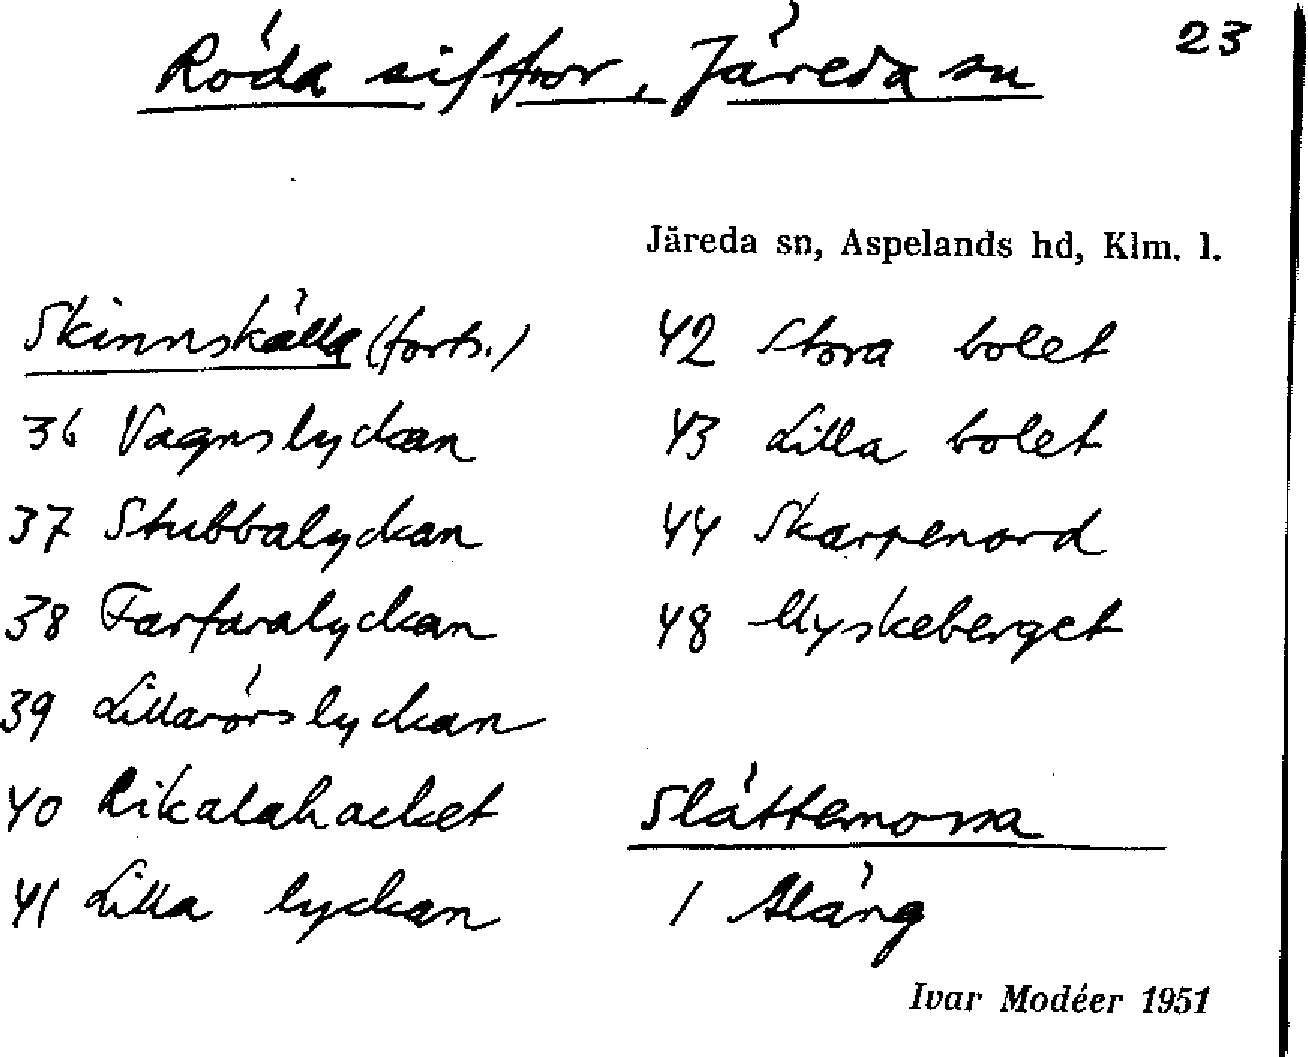 23
Röda siffror, Järeda sn
Järeda sn, Aspelands hd, Klm. l.
Skinnskälla (forts.)
36 Vagnslyckan
37 Stubbalyckan
38 Farfaralyckan
39 Lillarörslyckan
40 Rikalahacket
41 Lilla lyckan
42 Stora bolet
43 Lilla bolet
44 Skarpenord
48 Myskeberget
Slättemossa
1 Aläng
Ivar Modéer 1951